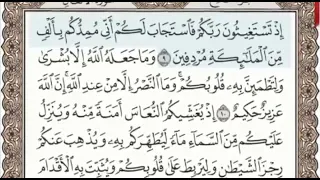 إِذْ تَسْتَغِيثُونَ رَبَّكُمْ فَٱسْتَجَابَ لَكُمْ أَنِّى مُمِدُّكُم بِأَلْفٍ
مِّنَ ٱلْمَلَٰٓئِكَةِ مُرْدِفِينَ ٩ وَمَا جَعَلَهُ ٱللَّهُ إِلَّا بُشْرَىٰ
وَلِتَطْمَئِنَّ بِهِۦ قُلُوبُكُمْ ۚ وَمَا ٱلنَّصْرُ إِلَّا مِنْ عِندِ ٱللَّهِ ۚ إِنَّ ٱللَّهَ
عَزِيزٌ حَكِيمٌ ١٠ إِذْ يُغَشِّيكُمُ ٱلنُّعَاسَ أَمَنَةً مِّنْهُ وَيُنَزِّلُ
عَلَيْكُم مِّنَ ٱلسَّمَآءِ مَآءً لِّيُطَهِّرَكُم بِهِۦ وَيُذْهِبَ عَنكُمْ
رِجْزَ ٱلشَّيْطَٰنِ وَلِيَرْبِطَ عَلَىٰ قُلُوبِكُمْ وَيُثَبِّتَ بِهِ ٱلْأَقْدَامَ